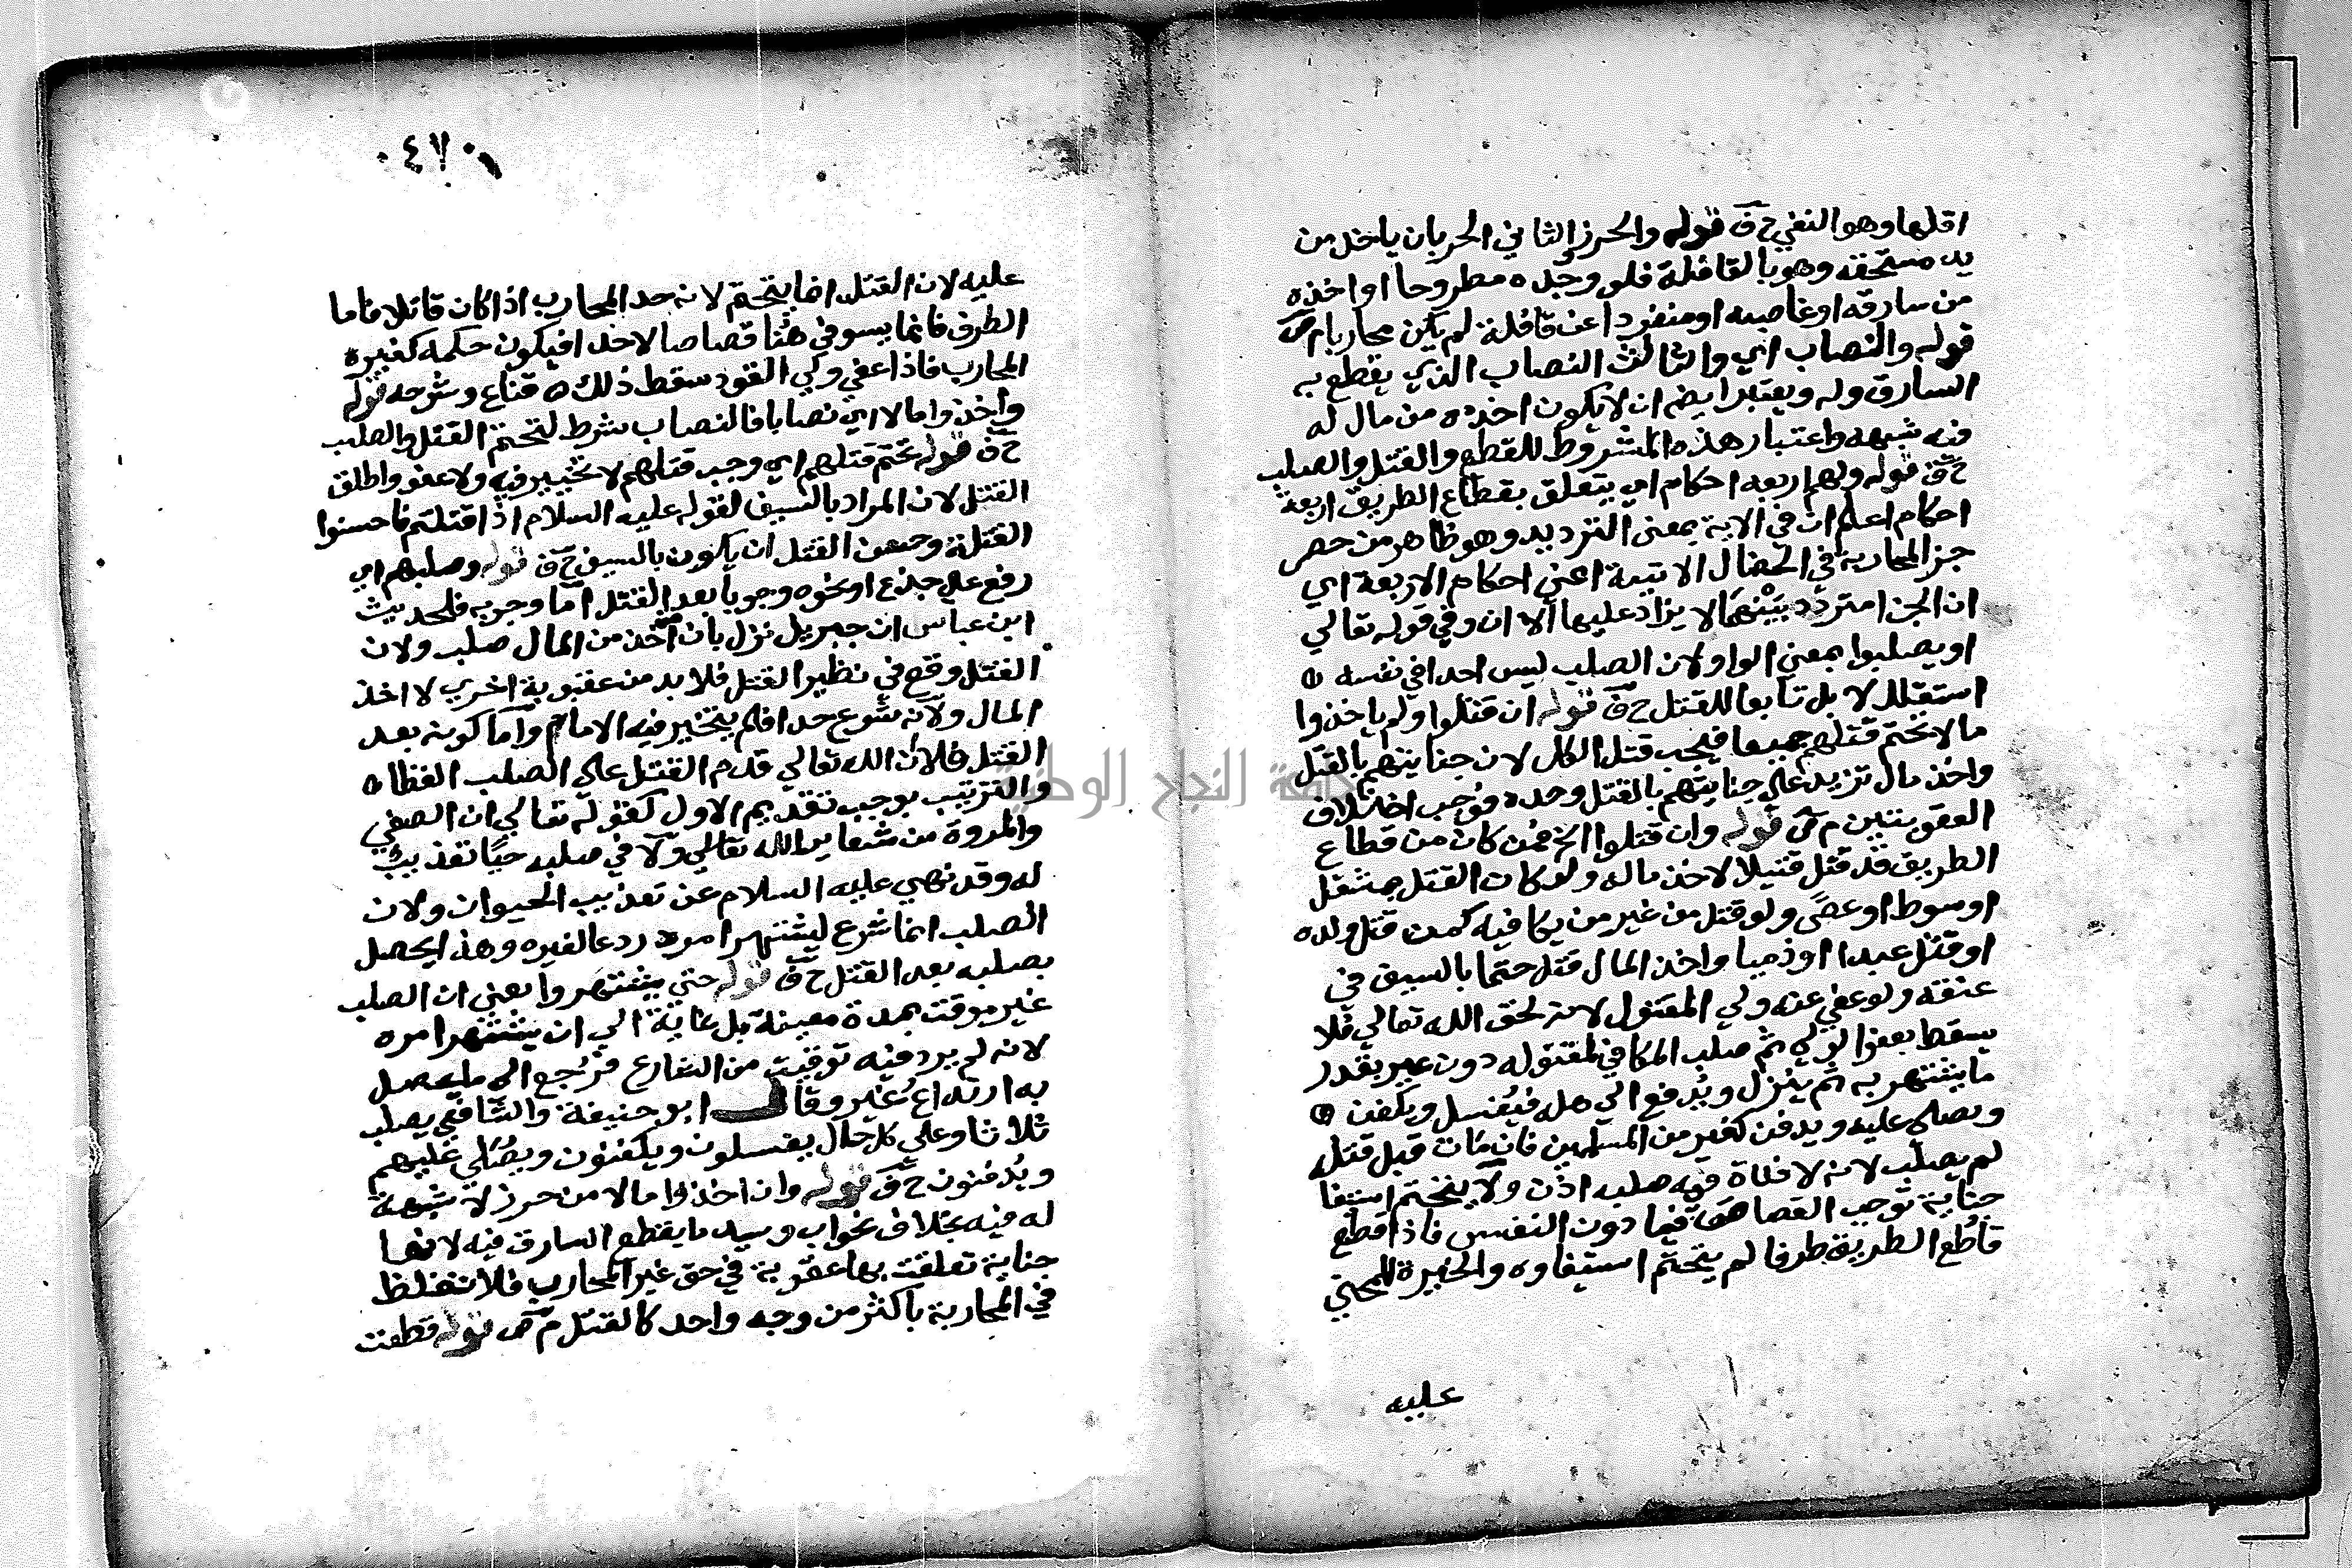 اقلها وهو النفي ح ف قوله والحرز الثاني الحر بان ياخذ من
يد مستحقه وهو بالقافلة فلو وجده مطروحا او اخذه
من سارقه او غاصبه او منفردا عن قافلة لم يكن محاربا م ص
قوله والنصاب اي والثالث النصاب الذي يقطع به
السارق وله ويعتبر ايضم ان لا يكون اخذه من مال له
فيه شبهه واعتبار هذه المشروط للقطع والقتل والصلب
ح ف قوله ولهم اربعه احكام اي يتعلق بقطاع الطريق اربعة
احكام اعلم ان في الاية بمعنى الترديد وهو ظاهر من حصر
جزا المحاربة في الخصال الاتية اعني احكام الاربعة اي
ان الجزا متردد بينهما لا يزاد عليها الا ان وفي قوله تعالي
او يصلبوا بمعني الواو لان الصلب ليس احدا في نفسه ه
استقلالا بل تابعا للقتل ح ف قوله ان قتلوا ولم ياخذوا
مالا تحتم قتلهم جميعا فيجب قتل الكل لان جنايتهم بالقتل
واخذ مال تزيد علي جنايتهم بالقتل وحده فوجب اختلاف
العقوبتين م ص قوله وان قتلوا الخ فمن كان من قطاع
الطريق قد قتل قتيلا لاخذ ماله ولو كان القتل بمثقل
او سوط او عصي ولو قتل من غير من يكافيه كمن قتل ولده
او قتل عبدا او ذميا واخذ المال قتل حتما بالسيف في
عنقه ولو عفي عنه ولي المقتول لانه لحق الله تعالي فلا
يسقط بعفو الولي ثم صلب المكافي لمقتوله دون غيره بقدر
ما يشتهر به ثم ينزل ويدفع الي اهله فيغسل ويكفن ه
ويصلي عليه ويدفن كغيره من المسلمين فان مات قبل قتله
لم يصلب لانه لا فائدة في صلبه اذن ولا يتحتم استيفا
جناية توجب القصاص فيما دون النفس فاذا قطع
قاطع الطريق طرفا لم يتحتم استيفاوه والخيرة للمجني
عليه
٠٤٧٠
عليه لان القتل انما يتحتم لانه حد المحارب اذا كان قاتلا فاما
الطرف فانما يسوفي هنا قصاصا لاحدا فيكون حكمه كغيره
المحارب فاذا عفي ولي القود سقط ذلك ه قناع وشرحه قوله
واخذوا مالا اي نصابا فالنصاب شرط لتحتم القتل والصلب
ح ف قوله تحتم قتلهم اي وجب قتلهم لا تخيير فيه ولا عفو واطلق
القتل لان المراد بالسيف لقوله عليه السلام اذا قتلتم فاحسنوا
القتلة وحسن القتل ان يكون بالسيف ح ف قوله وصلبهم اي
رفع علي جذع او نحوه وجوبا بعد القتل اما وجوبه فلحديث
ابن عباس ان جبريل نزل بان من اخذ المال صلب ولان
القتل وقع في نظير القتل فلا بد من عقوبة اخري لاخذ
المال ولانه شرع حدا فلم يتخير فيه الامام واما كونه بعد
القتل فلان الله تعالي قدم القتل علي الصلب لفظا ه
والترتيب يوجب تقديم الاول كقوله تعالي ان الصفي
والمروة من شعاير الله تعالي ولا في صلبه حيا تعذيب
له وقد نهي عليه السلام عن تعذيب الحيوان ولان
الصلب انما شرع ليشتهر امره ردعا لغيره وهذا يحصل
بصلبه بعد القتل ح ف قوله حتي يشتهروا يعني ان الصلب
غير موقت بمدة معينة بل غاية الي ان يشتهر امره
لانه لم يرد فيه توقيت من الشارع فرجع الي ما يحصل
به ارتداع غيره وقال ابو حنيفة والشافعي يصلب
ثلاثا وعلي كل حال يغسلون ويكفنون ويصلي عليهم
ويدفنون ح ف قوله وان اخذوا مالا من حرز لا شبهة
له فيه بخلاف نحو اب وسيد ما يقطع السارق فيه لانها
جناية تعلقت بها عقوبة في حق غير المحارب فلا تغلظ
في المحاربة باكثر من وجه واحد كالقتل م ص قوله قطعت
جامعة النجاح الوطنية